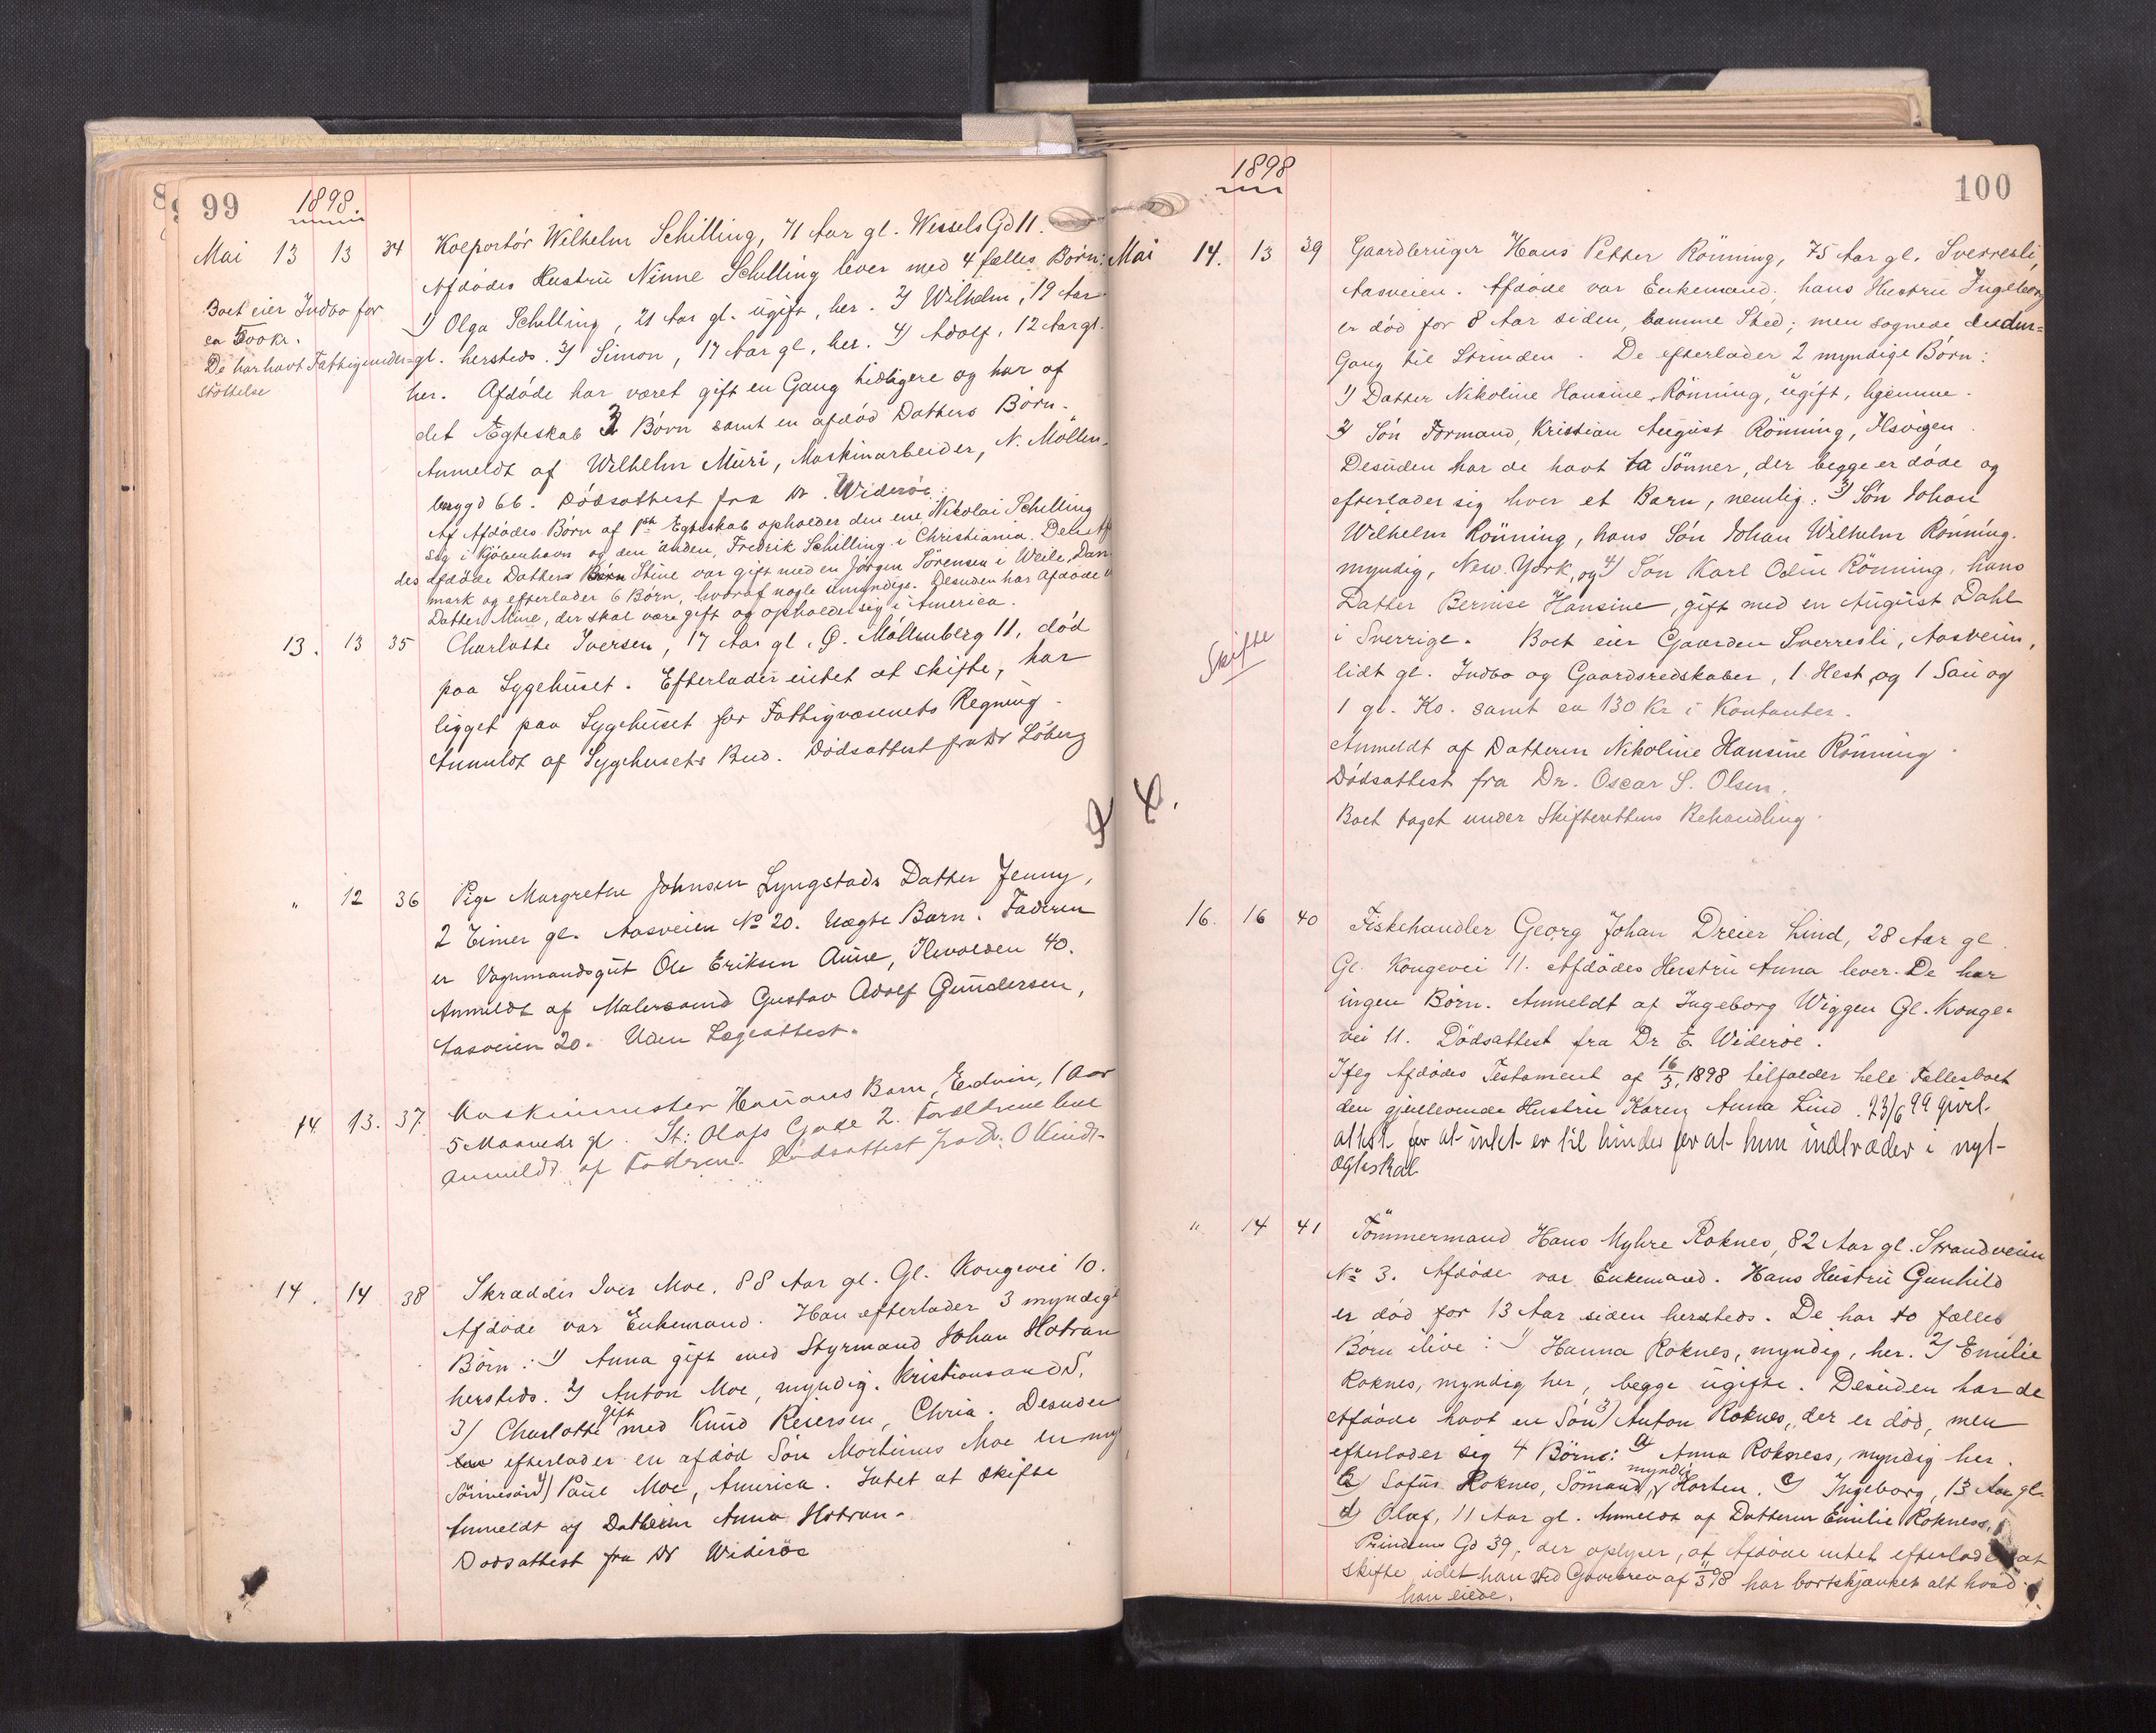 99 1898.
Mai 13 13 34 Kolportör Wilhelm Schilling, 71 Aar gl. Wessels Gd 11.
Afdödes Hustru Ninne Schilling lever med 4 fælles Börn:
Boet eier Indbo for
1) Olga Schilling, 21 Aar gl. ugift, her. 2) Wilhelm, 19 Aar
ca 500 kr.
gl. hersteds. 3) Simon, 17 Aar gl, her. 4) Adolf, 12 Aar gl.
De har havt Fattigunder-
støttelse
her. Afdöde har været gift en Gang tidligere og har af
det Ægteskab 3 Börn samt en afdöd Datters Börn.
Anmeldt af Wilhelm Muri, Maskinarbeider, N. Möllen-
bergd 66. Dödsattest fra Dr. Wideröe.
Af Afdödes Börn af 1ste Egteskab opholder den ene, Nikolai Schilling
sig i Kjöbenhavn og den anden, Fredrik Schilling i Christiania. Den Af-
des afdöde Datter Stine var gift med en Jörgen Sörensen i Weile, Dan-
mark og efterlader 6 Börn, hvoraf nogle umyndige. Desuden har Afdöde
Datter Mine, der skal være gift og opholder sig i America.
13. 13 35 Charlotte Iversen, 17 Aar gl, Ø. Möllenberg 11, död
paa Sygehuset. Efterlader intet at skifte, har
ligget paa Sygehuset for Fattigvæsenets Regning.
Anmeldt af Sygehusets Bud. Dödsattest fra Dr Löberg
" 12 36 Pige Margrethe Johnsen Lyngstads Datter Jenny,
2 Timer gl. Aasveien No 20. Uægte Barn. Faderen
er Vognmandsgut Ole Eriksen Aune, Ilevolden 40.
Anmeldt af Malersvend Gustav Adolf Gundersen,
Aasveien 20. Uden Lægeattest.
14 13. 37 Maskinmester Hanans Barn, Edvin, 1 Aar
5 Maaneder gl. St: Olafs Gade 2. Forældrene leve
Anmeldt af Faderen. Dödsattest fra Dr. O Kindt
14. 14 38 Skrædder Iver Moe, 88 Aar gl. Gl. Kongevei 10.
Afdöde var Enkemand. Han efterlader 3 myndige
Börn: 1) Anna gift med Styrmand Johan Hotran
hersteds. 2) Anton Moe, myndig. Kristiansand S.
3) Charlotte gift med Knud Reiersen, Chria. Desuden
efterlader en afdöd Sön Mortinus Moe en myn
Sönnesön 4) Paul Moe, America. Intet at skifte
Anmeldt af Datteren Anna Hotran.
Dödsattest fra Dr Wideröe
1898
100
Mai 14. 13 39 Gaardbruger Hans Petter Rönning, 75 Aar gl. Sverresli,
Aasveien. Afdöde var Enkemand; hans Hustru Ingeborg
er död for 8 Aar siden, samme Sted; men sognede dendin-
Gang til Strinden. De efterlader 2 myndige Börn:
1) Datter Nikoline Hansine Rönning, ugift, hjemme.
2) Sön Formand, Kristian August Rönning, Ilsvigen.
Desuden har de havt to Sönner, der begge er döde og
efterlader sig hver et Barn, nemlig: 3) Sön Johan
Wilhelm Rönning, hans Sön Johan Wilhelm Rönning.
myndig, New. York, og 4) Sön Karl Odin Rönning, hans
Datter Bernise Hansine, gift med en August Dahl
Skifte
i Sverrige. Boet eier Gaarden Sverresli, Aasveien,
lidt gl. Indbo og Gaardsredskaber, 1 Hest, og 1 Sau og
1 gl. Ko. samt ca 130 Kr i Kontanter.
Anmeldt af Datteren Nikoline Hansine Rönning.
Dödsattest fra Dr. Oscar S. Olsen.
Boet taget under Skifterettens Behandling.
16. 16 40 Fiskehandler Georg Johan Dreier Lind, 28 Aar gl.
Gl. Kongevei 11. Afdödes Hustru Anna lever. De har
ingen Börn. Anmeldt af Ingeborg Wiggen Gl. Konge-
vei 11. Dödsattest fra Dr E. Wideröe.
Ifлg Afdödes Testament af 16/3 1898 tilfalder hele Fællesboet
den gjenlevende Hustru Karen Anna Lind. 23/6 99 givet
attest for at intet er til hinder for at hun indtræder i nyt
ægteskab
" 14 41 Tömmermand Hans Myhre Roknes, 82 Aar gl. Strandveien
No 3. Afdöde var Enkemand. Hans Hustru Gunhild
er död for 13 Aar siden hersteds. De har to fælles
Börn ilive: 1) Hanna Roknes, myndig, her. 2) Emilie
Roknes, myndig her, begge ugifte. Desuden har de
Afdöde havt en Sön 3) Anton Roknes, der er död, men
efterlader sig 4 Börn: a) Anna Rokness, myndig her.
b) Sofus Roknes, Sömand, myndig Horten. c) Ingeborg, 13 Aar gl.
d) Olaf, 11 Aar gl. Anmeldt af Datteren Emilie Rokness,
Prindsens Gd 39, der oplyser, at Afdöde intet efterlader at
skifte, idet han ved Gavebrev af 11/3 98 har bortskjænket alt hvad
han eiede.